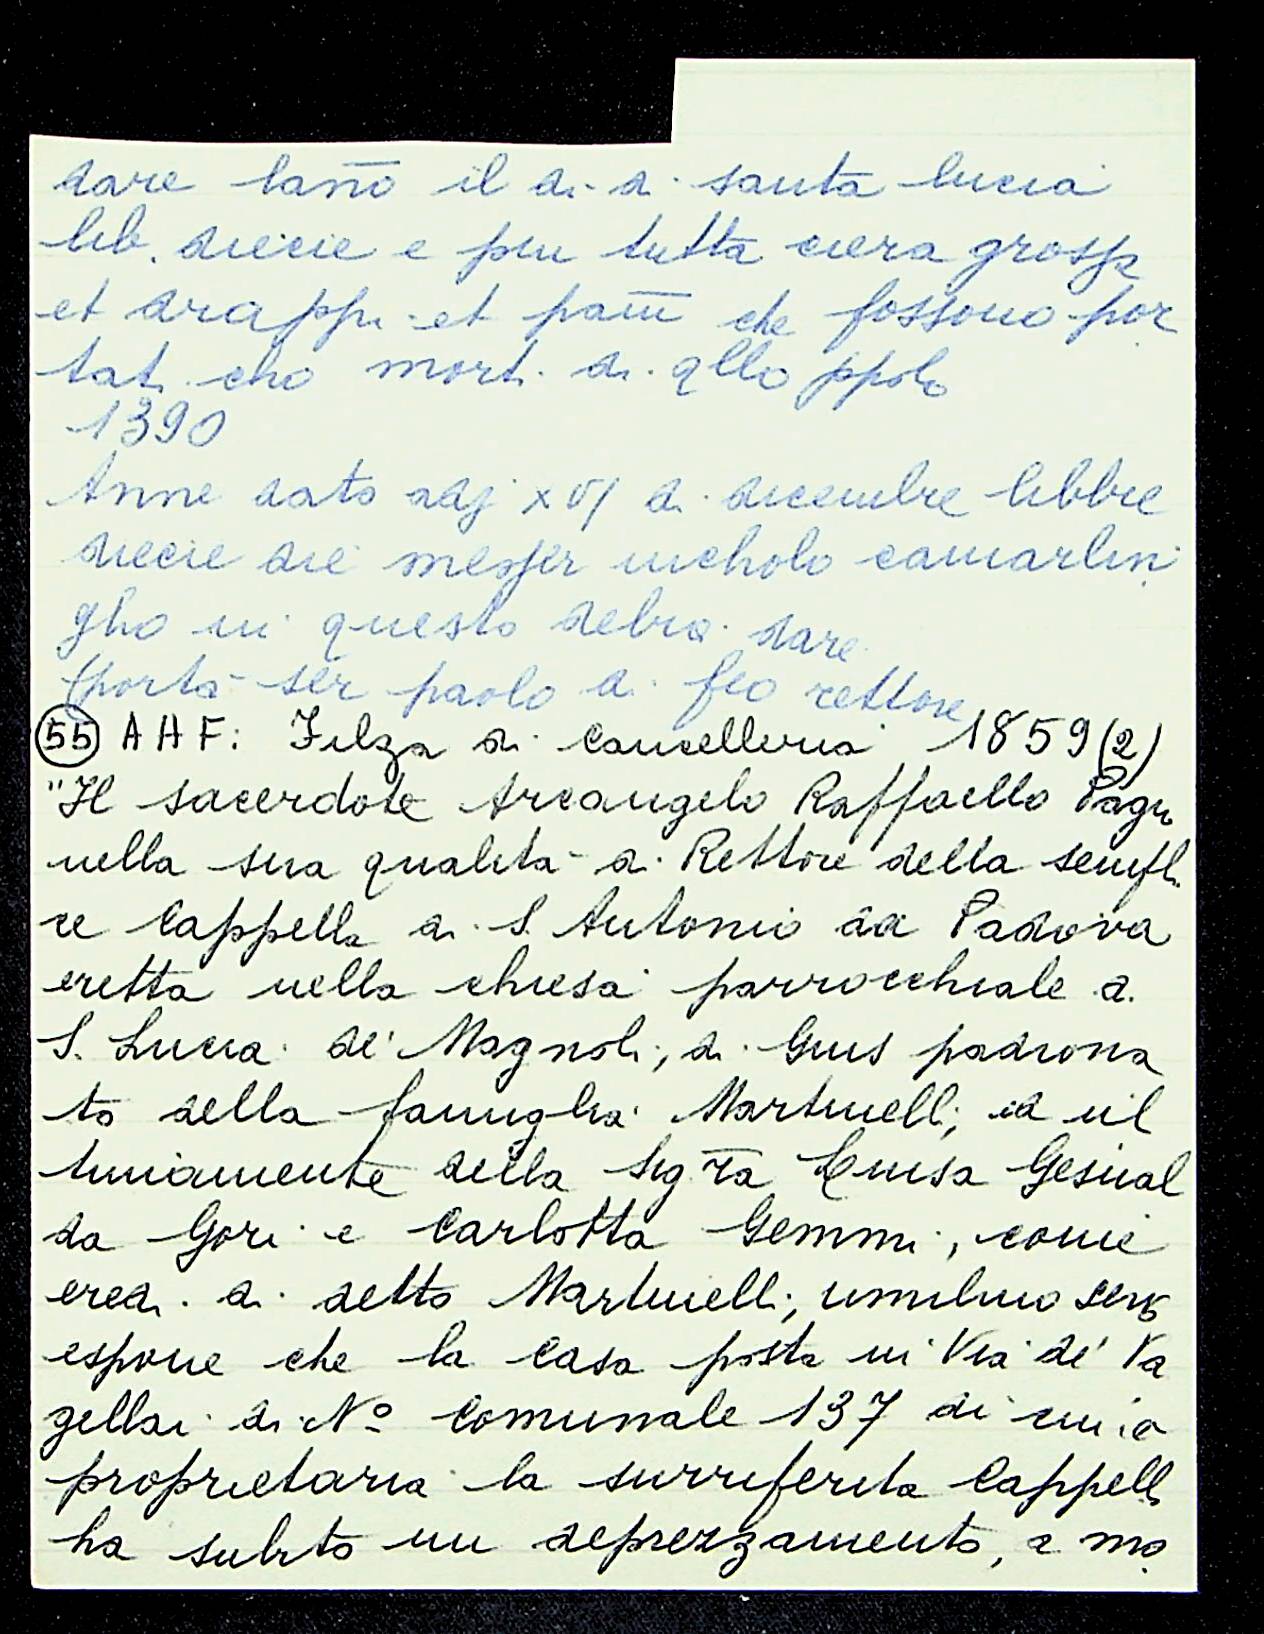 dare lanno il di di santa lucia
lib. diecie e piu tutta ciera grossa
et drappi et panni che fossono por
tati cho morti di qllo ppolo
1390
Anne dato adj xvj di dicembre libbre
diecie die messer nicholo camarlin
gho in questo debia dare
porto ser paolo di feo rettore
(55) AHF: Filza di Cancelleria 1859(2)
"Il sacerdote Arcangelo Raffaello Pagni
nella sua qualità di Rettore della sempli
ce Cappella di S. Antonio da Padova
eretta nella chiesa parrocchiale di
S. Lucia de' Magnoli, di Gius padrona
to della famiglia Martinelli, ed ul
timamente della Sig ra Luisa Gesual
da Gori e Carlotta Gemmi, come
eredi di detto Martinelli, umilmo servo
espone che la casa posta in Via de' Va
gellai di No comunale 137 di cui è
proprietaria la surriferita Cappella
ha subito un deprezzamento, a mo